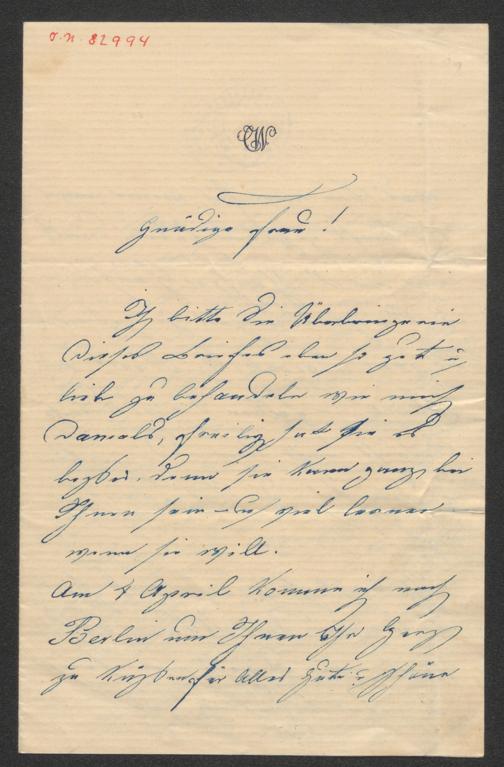 J.N. 82994
CW
Gnädige Frau!
Ich bitte die Überbringerin
dieses Briefes eben so gut u
lieb zu behandeln wie mich
damals, freilich hat sie es
besser, denn sie kann ganz bei
Ihnen sein – u viel lernen
wenn sie will.
Am 4 April komme ich nach
Berlin um Ihnen Ihr Herz
zu küssen für Alles Gute u Schöne